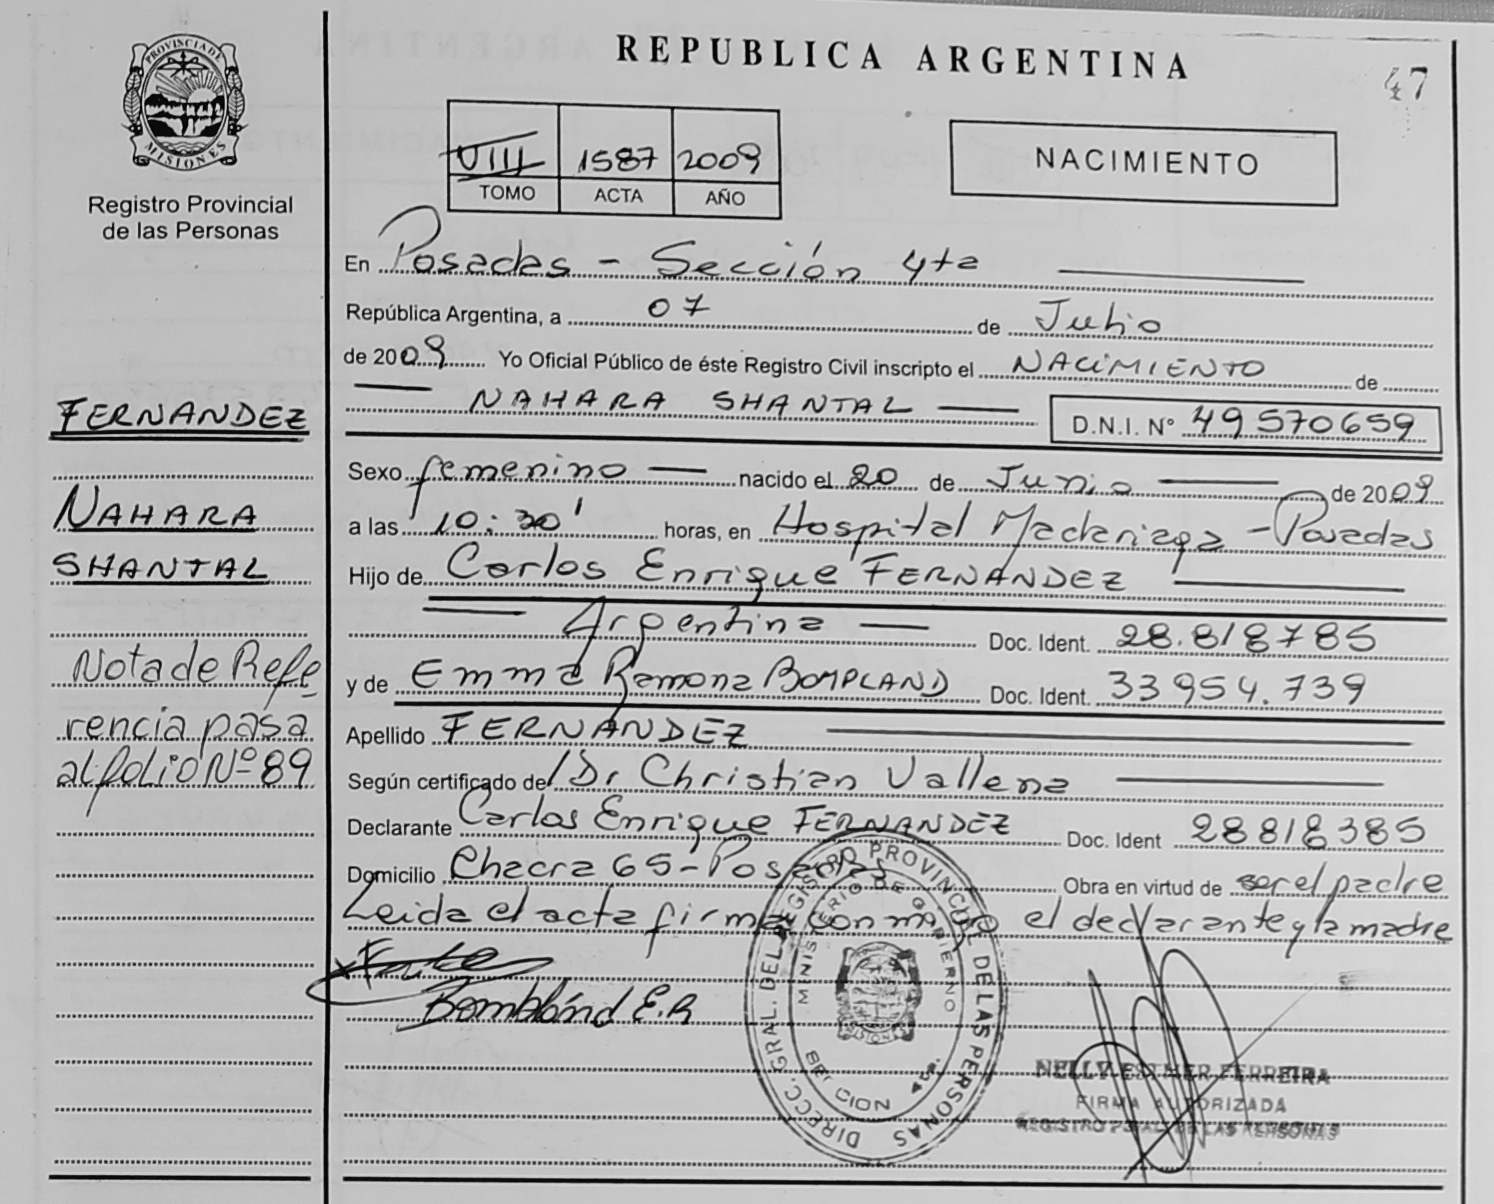 PROVINCIA DE
MISIONES
Registro Provincial
de las Personas
REPUBLICA ARGENTINA
47
VIII 1587 2009
TOMO ACTA AÑO
NACIMIENTO
En Posadas - Sección 4ta
República Argentina, a 07 de Julio
de 2009 Yo Oficial Público de éste Registro Civil inscripto el NACIMIENTO de
NAHARA SHANTAL D.N.I. N° 49570659
Sexo femenino nacido el 20 de Junio de 2009
a las 10:30' horas, en Hospital Madariaga - Posadas
Hijo de Carlos Enrique FERNANDEZ
Argentina Doc. Ident. 28.818785
y de Emma Ramona BOMPLAND Doc. Ident. 33954.739
Apellido FERNANDEZ
Según certificado del Dr Christian Vallena
Declarante Carlos Enrique FERNANDEZ Doc. Ident 28818385
Domicilio Chacra 65 - Posadas Obra en virtud de ser el padre
Leida el acta firma conmigo el declarante y la madre
Bombland E.R
FERNANDEZ
NAHARA
SHANTAL
Nota de Refe
rencia pasa
al folio Nº 89
DIRECC. GRAL. DEL REGISTRO PROVINCIAL DE LAS PERSONAS
MINISTERIO DE GOBIERNO
MISIONES
SECCION 4ta.
NELLY ESTHER FERREIRA
FIRMA AUTORIZADA
REGISTRO PCIAL. DE LAS PERSONAS